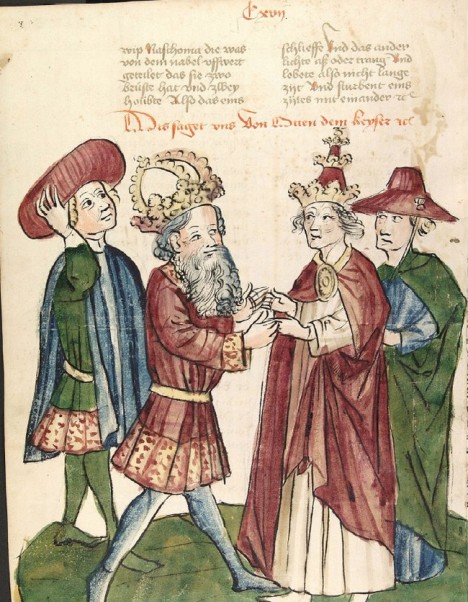 Cxvij
wip Naschoma die was
von dem nabel vffwert
geteilet das sie zwo
brüste hat vnd zwey
houbte Also das eins
schlieffe Vnd das ander
aß oder trang Vnd
lebete also nicht lange
zijt Vnd sturbent eins
zijtes mit einander ꝛc
Dis saget vns Von Otten dem keyser ꝛc